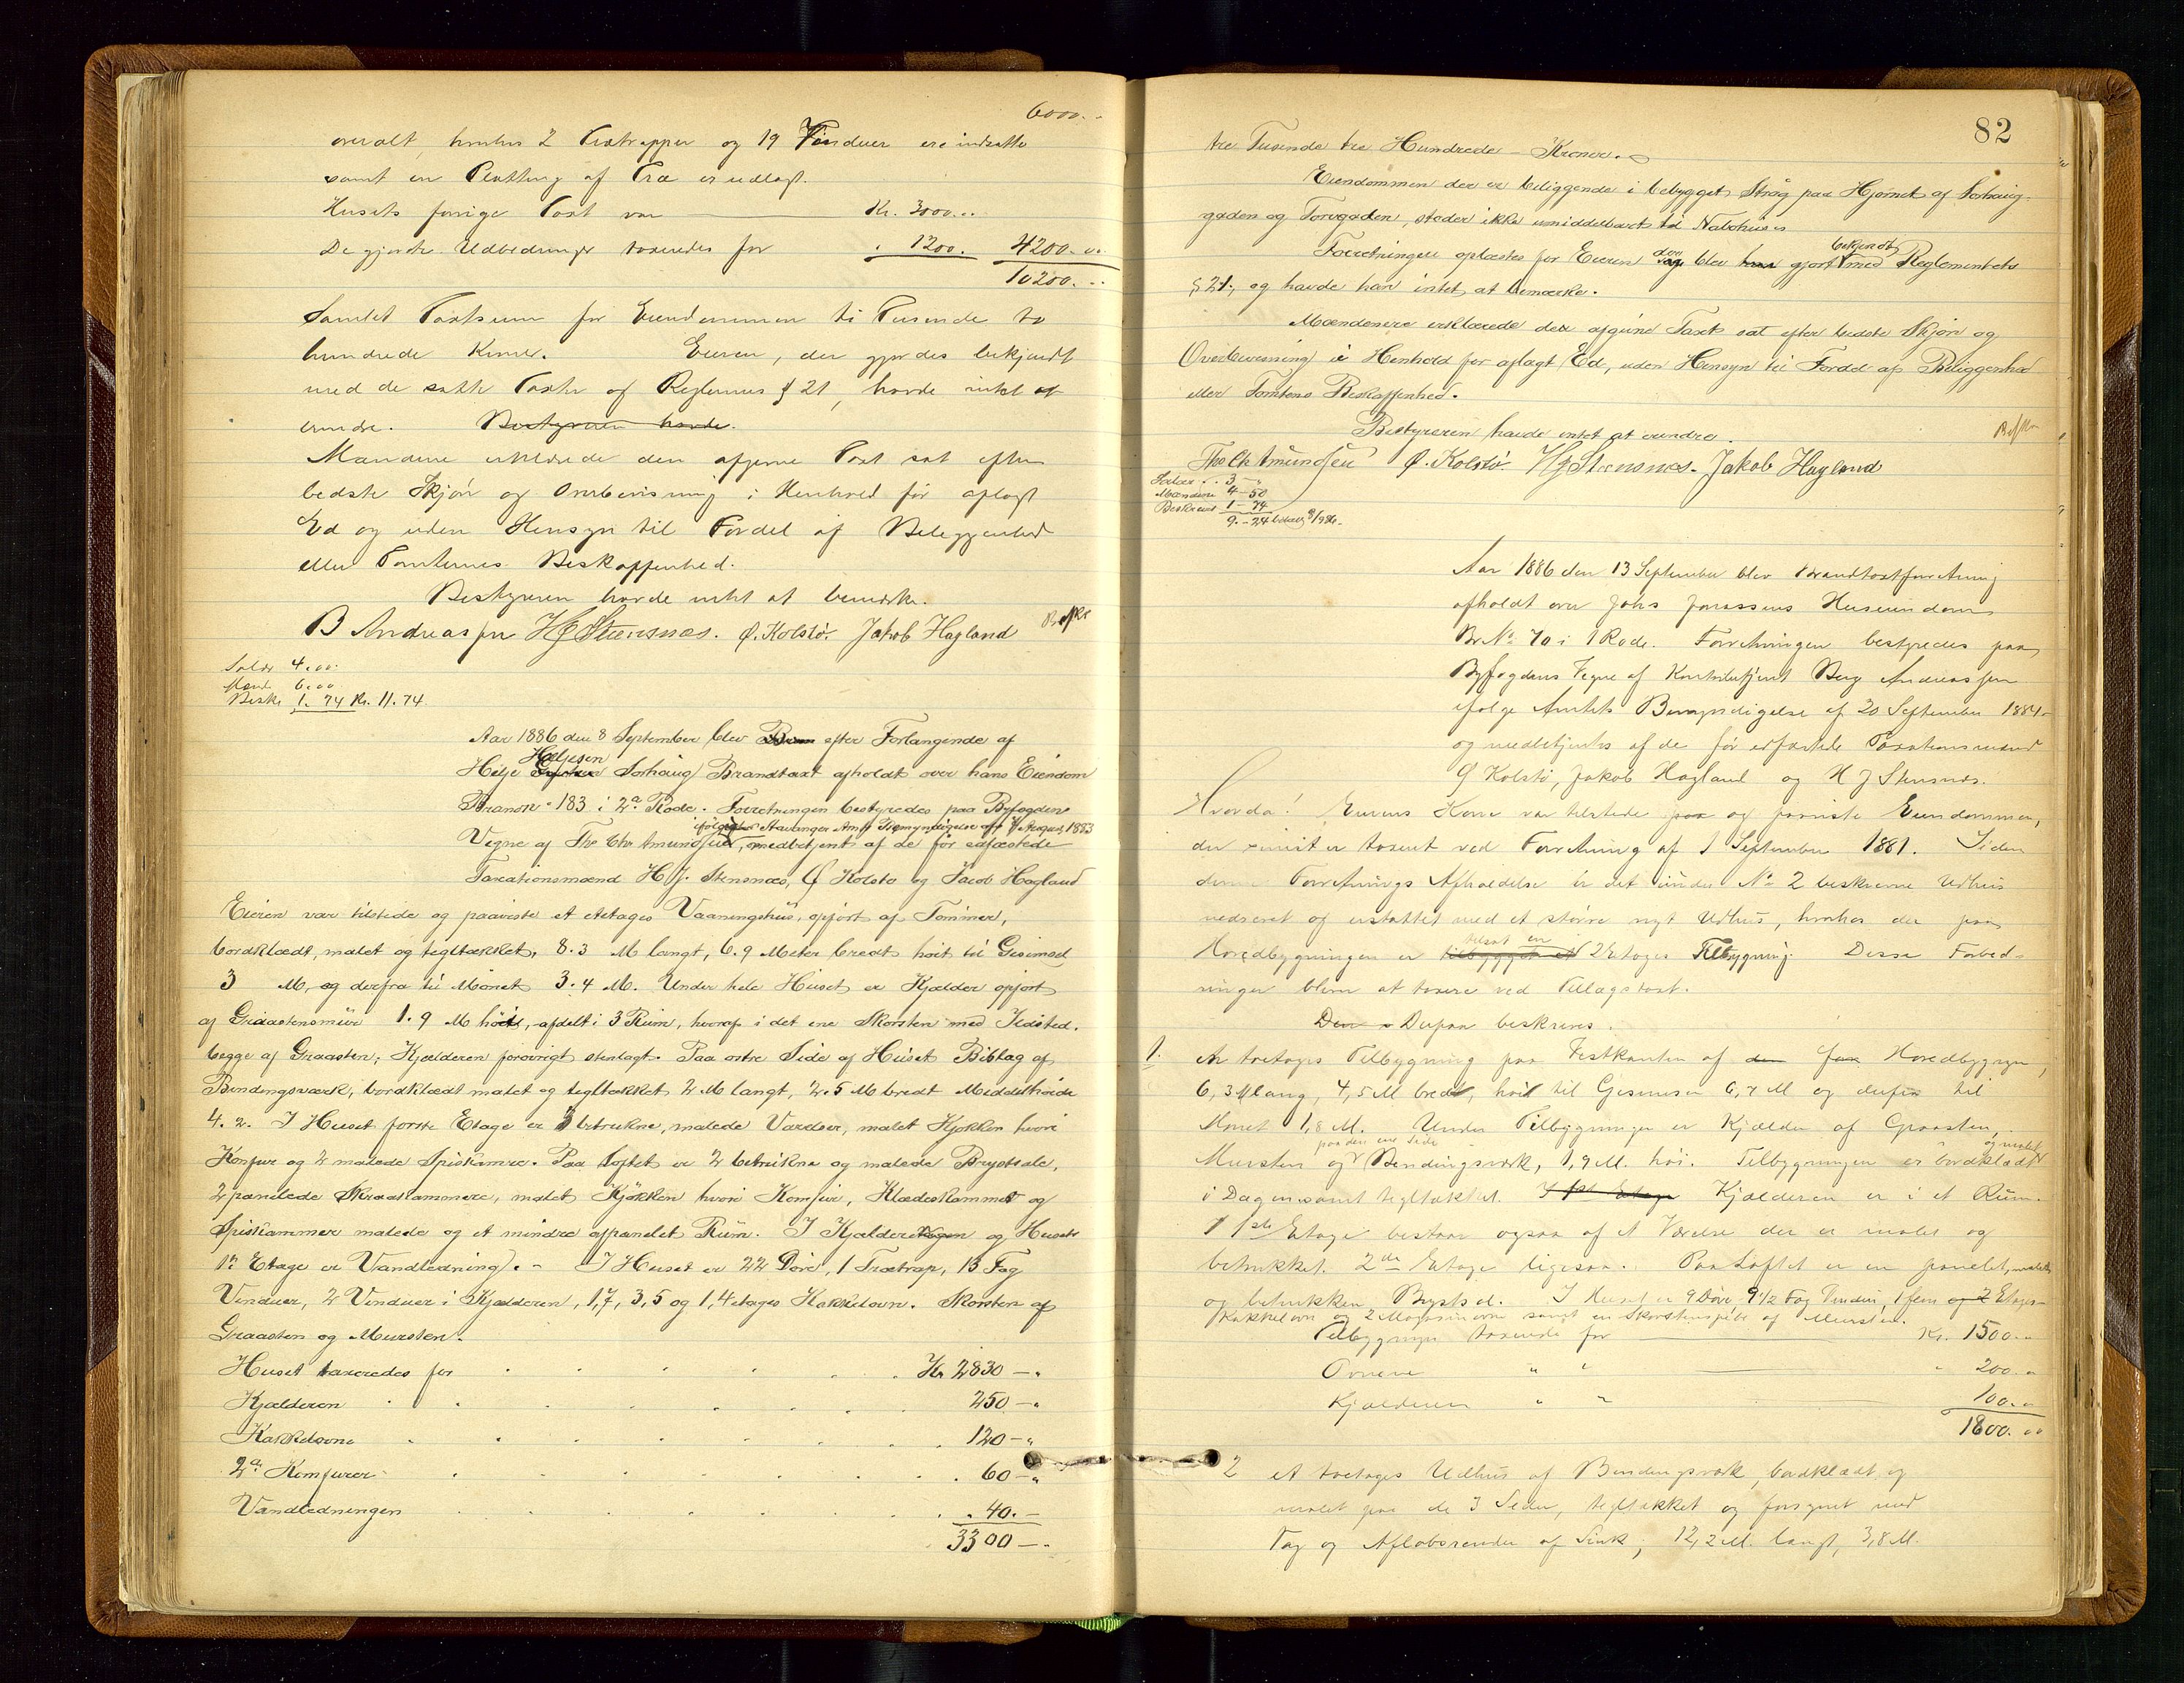 6000. -
overalt, hvorhos 2 Trætrapper og 19 Vinduer ere indsatte
samt en Platting af Træ er udlagt.
Husets forrige Taxt var Kr. 3000..
De gjorte Udbedringer taxeredes for " 1200. 4200...
10200...
Samlet Taxtsum for Eiendommen ti Tusende to
hundrede Kroner. Eieren, der gjordes bekjendt
med de satte Taxter og Reglernes § 21, havde intet at
erindre. Bestyreren havde.
Mændene erklærede den afgivne Taxt sat efter
bedste Skjøn og Overbevisning i Henhold før aflagt
Ed og uden Hensyn til Fordel af Beliggenhed
eller Tomternes Beskaffenhed.
Bestyreren havde intet at bemærke.
B Andreassen HJStensnæs. Ø. Kolstø. Jakob Hagland
Salær 4.00
Mænd. 6.00
Beskr. 1.74 Kr. 11.74
Aar 1886 den 8 September blev efter Forlangende af
Heljesen
Helje Sørhaug Brandtaxt afholdt over hans Eiendom
Branno 183 i 2a Rode. Forretningen bestyredes paa Byfogdens
ifølge Stavanger Amts Bemyndigelse af August 1883
Vegne af Ths. Chr. Amundsen, medbetjent af de før edfæstede
Taxationsmænd H. J. Stensnæs, Ø Kolstø og Jacob Hagland
Eieren var tilstede og paaviste et etetages Vaaningshus, opført af Tømmer,
bordklædt, malet og tegltækket, 8.3 M langt, 6.9 Meter bredt høit til Gesimsed
3 M, og derfra til Mønet 3.4 M. Under hele Huset er Kjælder opført
af Graastensmur 1.9 M høit, afdelt i 3 Rum, hvoraf i det ene Skorsten med Ildsted.
begge af Graasten; Kjælderen forøvrigt stenlagt. Paa østre Side af Huset Bislag af
Bindingsværk, bordklædt malet og tegltækket 2 M langt, 2.5 M bredt Middelhøide
4.2. I Huset første Etage er 3 betrukne, malede Værelser, malet Kjøkken hvori
Komfur og 2 malede Spiskamre. Paa Loftet er 2 betrukne og malede Brystsale,
2 panelede Skraakammere, malet Kjøkken hvori Komfur, Klædeskammer og
Spiskammer malede og et mindre afpanelet Rum. I Kjælderetagen og Husets
1ste Etage er Vandledning. - I Huset er 22 Døre, 1 Trætrap, 13 Fag
Vinduer, 2 Vinduer i Kjælderen, 1,7, 3,5 og 1,4 etages Kakkelovn. Skorsten af
Graasten og Mursten.
Huset taxeredes for Kr 2830 - "
Kjælderen 250 - "
Kakkelovne 120 - "
2a Komfurer 60 - "
Vandledningen 40. -
3300 - "
82
tre Tusende tre Hundrede - Kroner.
Eiendommen der er beliggende i bebygget Strøg paa Hjørnet af Sørhaug-
gaden og Torvgaden, støder ikke umiddelbart til Nabohuse
bekjendt
Forretningen oplæstes for Eieren der blev gjort med Reglementets
§ 21, og havde han intet at bemærke.
Mændenere erklærede den afgivne Taxt sat efter bedste Skjøn og
Overbevisning i Henhold før aflagt Ed, uden Hensyn til Fordel af Beliggenhed
eller Tomtens Beskaffenhed.
Bestyreren havde intet at erindre.
Ths Chr Amundsen Ø. Kolstø. HJStensnæs. Jakob Hagland
Salær 3 - "
Mændene 4 - 50
Beskrivels 1 - 74
9. - 24
Aar 1886 den 13 September blev Brandtaxtforretning
afholdt over Johs Jonassens Huseiendom
Br. No 70 i 1 Rode. Forretningen bestyredes paa
Byfogdens Vegne af Kontorbetjent Berg Andreassen
ifølge Amtets Bemyndigelse af 20 September 1884
og medbetjentes af de før edfæstede Taxationsmænd
Ø Kolstø, Jakob Hagland og H J Stensnæs.
Hvorda! Eierens Kone var tilstede og paaviste Eiendommen,
der sinist er taxeret ved Forretning af 1 September 1881. Siden
denne Forretnings Afholdelse er det under No 2 beskrevne Udhus
nedrevet og erstattet med et større nyt Udhus, hvorhos der paa
tilsat en
Hovedbygningen er tilbygget et 2 Etages Tilbygning. Disse Forbed-
ringer bliver at taxere ved Tillægstaxt.
Den Derpaa beskreves.
1. en toetages Tilbygning paa Vestkanten af Hovedbygngen,
6,3 M lang, 4,5 M bred, høi til Gesimsen 6,7 M og derfra til
Mønet 1,8 M. Under Tilbygningen er Kjælder af Graasten,
paa den ene Side og malet
Mursten og Bindingsværk, 1,9 M. høi. Tilbygningen er bordklædt
i Dagen samt tegltækket. I 1st Etage Kjælderen er i et Rum.
I 1ste Etage bestaar ogsaa af et Værelse der er malet og
betrukket. 2den Etage ligesaa. Paa Loftet er en panelet, malet
og betrukken Brystsal. I Huset er 9 Døre, 9 1/2 Fag Vinduer, 1 fem og 2 Etages
Kakkelovn og 2 Magasinovne samt en Skorstenspibe af Mursten.
Tilbygningen taxeredes for Kr. 1500...
Ovnene " " " 200..
Kjælderen " " 100..
1800...
2 et toetages Udhus af Bindingsværk, bordklædt og
malet paa de 3 Sider, tegltækket og forsynet med
Tag og Afløbsrender af Sink; 12,2 M. langt, 3,8 M.